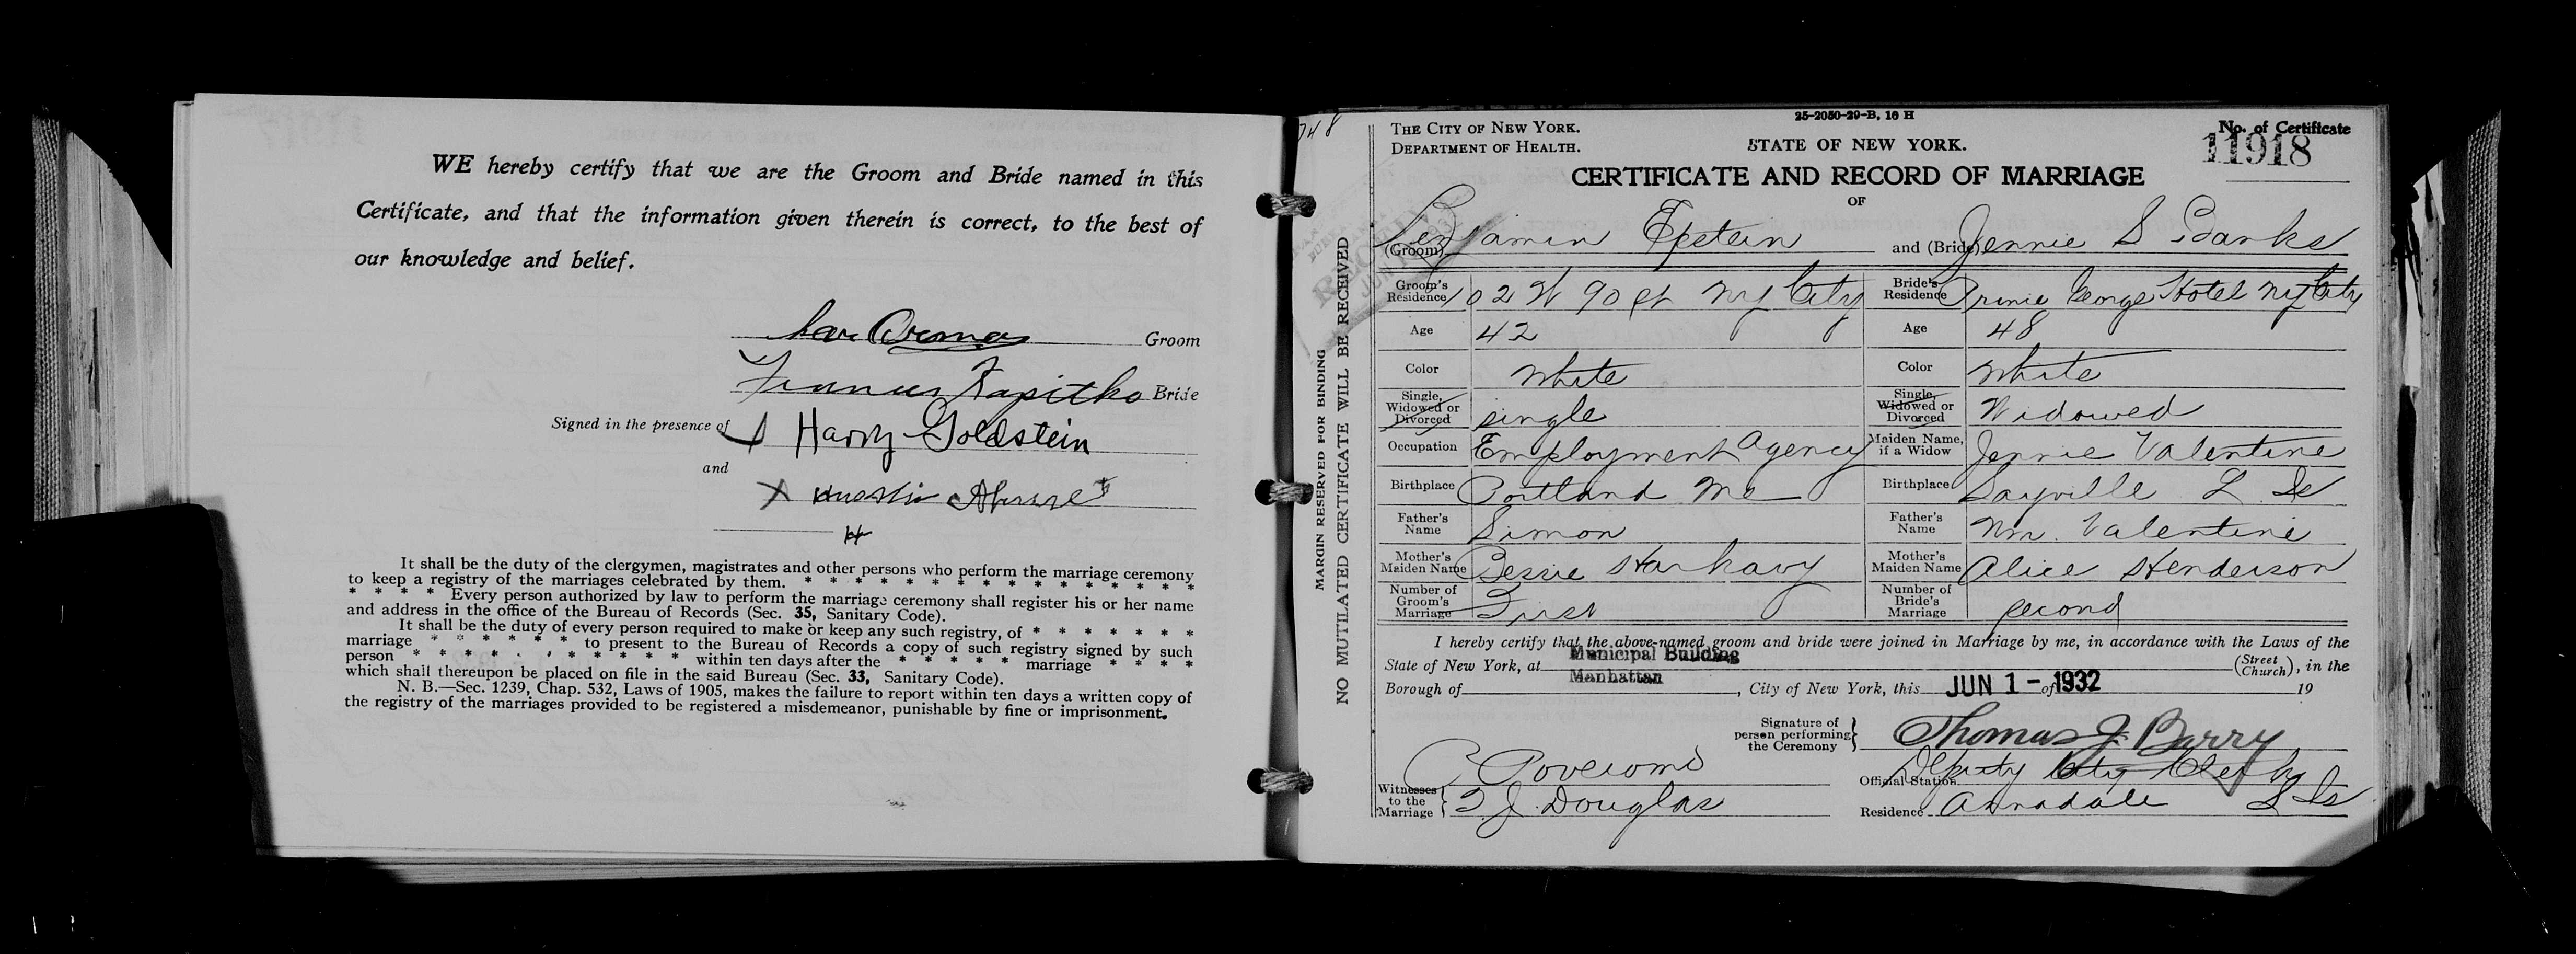 WE hereby certify that we are the Groom and Bride named in this
Certificate, and that the information given therein is correct, to the best of
our knowledge and belief.
Groom
Frances Kapitko Bride
Signed in the presence of Harry Goldstein
and
X
It shall be the duty of the clergymen, magistrates and other persons who perform the marriage ceremony
to keep a registry of the marriages celebrated by them. * * * * * * * * * * * * * * * *
* * * * Every person authorized by law to perform the marriage ceremony shall register his or her name
and address in the office of the Bureau of Records (Sec. 35, Sanitary Code).
It shall be the duty of every person required to make or keep any such registry, of * * * * * * *
marriage * * * * * * to present to the Bureau of Records a copy of such registry signed by such
person * * * * * * * * * * * within ten days after the * * * * * marriage * * * *
which shall thereupon be placed on file in the said Bureau (Sec. 33, Sanitary Code).
N. B.—Sec. 1239, Chap. 532, Laws of 1905, makes the failure to report within ten days a written copy of
the registry of the marriages provided to be registered a misdemeanor, punishable by fine or imprisonment.
MARGIN RESERVED FOR BINDING
NO MUTILATED CERTIFICATE WILL BE RECEIVED
25-2050-29-B, 16 H
THE CITY OF NEW YORK.
DEPARTMENT OF HEALTH.
STATE OF NEW YORK.
No. of Certificate
11918
CERTIFICATE AND RECORD OF MARRIAGE
OF
(Groom) Benjamin Epstein and (Bride) Jennie S Banks
Groom's Residence 102 W 90 St NY City Bride's Residence Prince George Hotel NY City
Age 42 Age 48
Color White Color White
Single, Widowed or Divorced single Single, Widowed or Divorced Widowed
Occupation Employment Agency Maiden Name, if a Widow Jennie Valentine
Birthplace Portland Me Birthplace Sayville L Is
Father's Name Simon Father's Name Wm. Valentine
Mother's Maiden Name Bessie Harkavy Mother's Maiden Name Alice Henderson
Number of Groom's Marriage First Number of Bride's Marriage second
I hereby certify that the above-named groom and bride were joined in Marriage by me, in accordance with the Laws of the
State of New York, at Municipal Building (Street Church), in the
Borough of Manhattan, City of New York, this JUN 1 - of 1932 19
Signature of person performing the Ceremony Thomas J. Barry
Official Station Deputy City Clerk
Witnesses to the Marriage
J. Douglas
Residence Annadale S Is